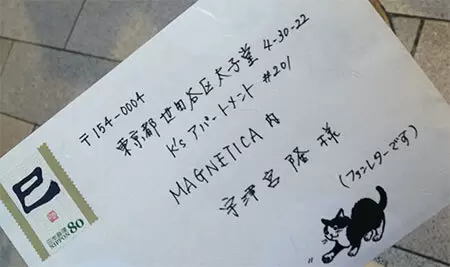 〒154-0004
東京都世田谷区太子堂 4-30-22
K's アパートメント #201
MAGNETICA 内
宇津宮 隆 様
(ファンレターです)
巳
NIPPON 80